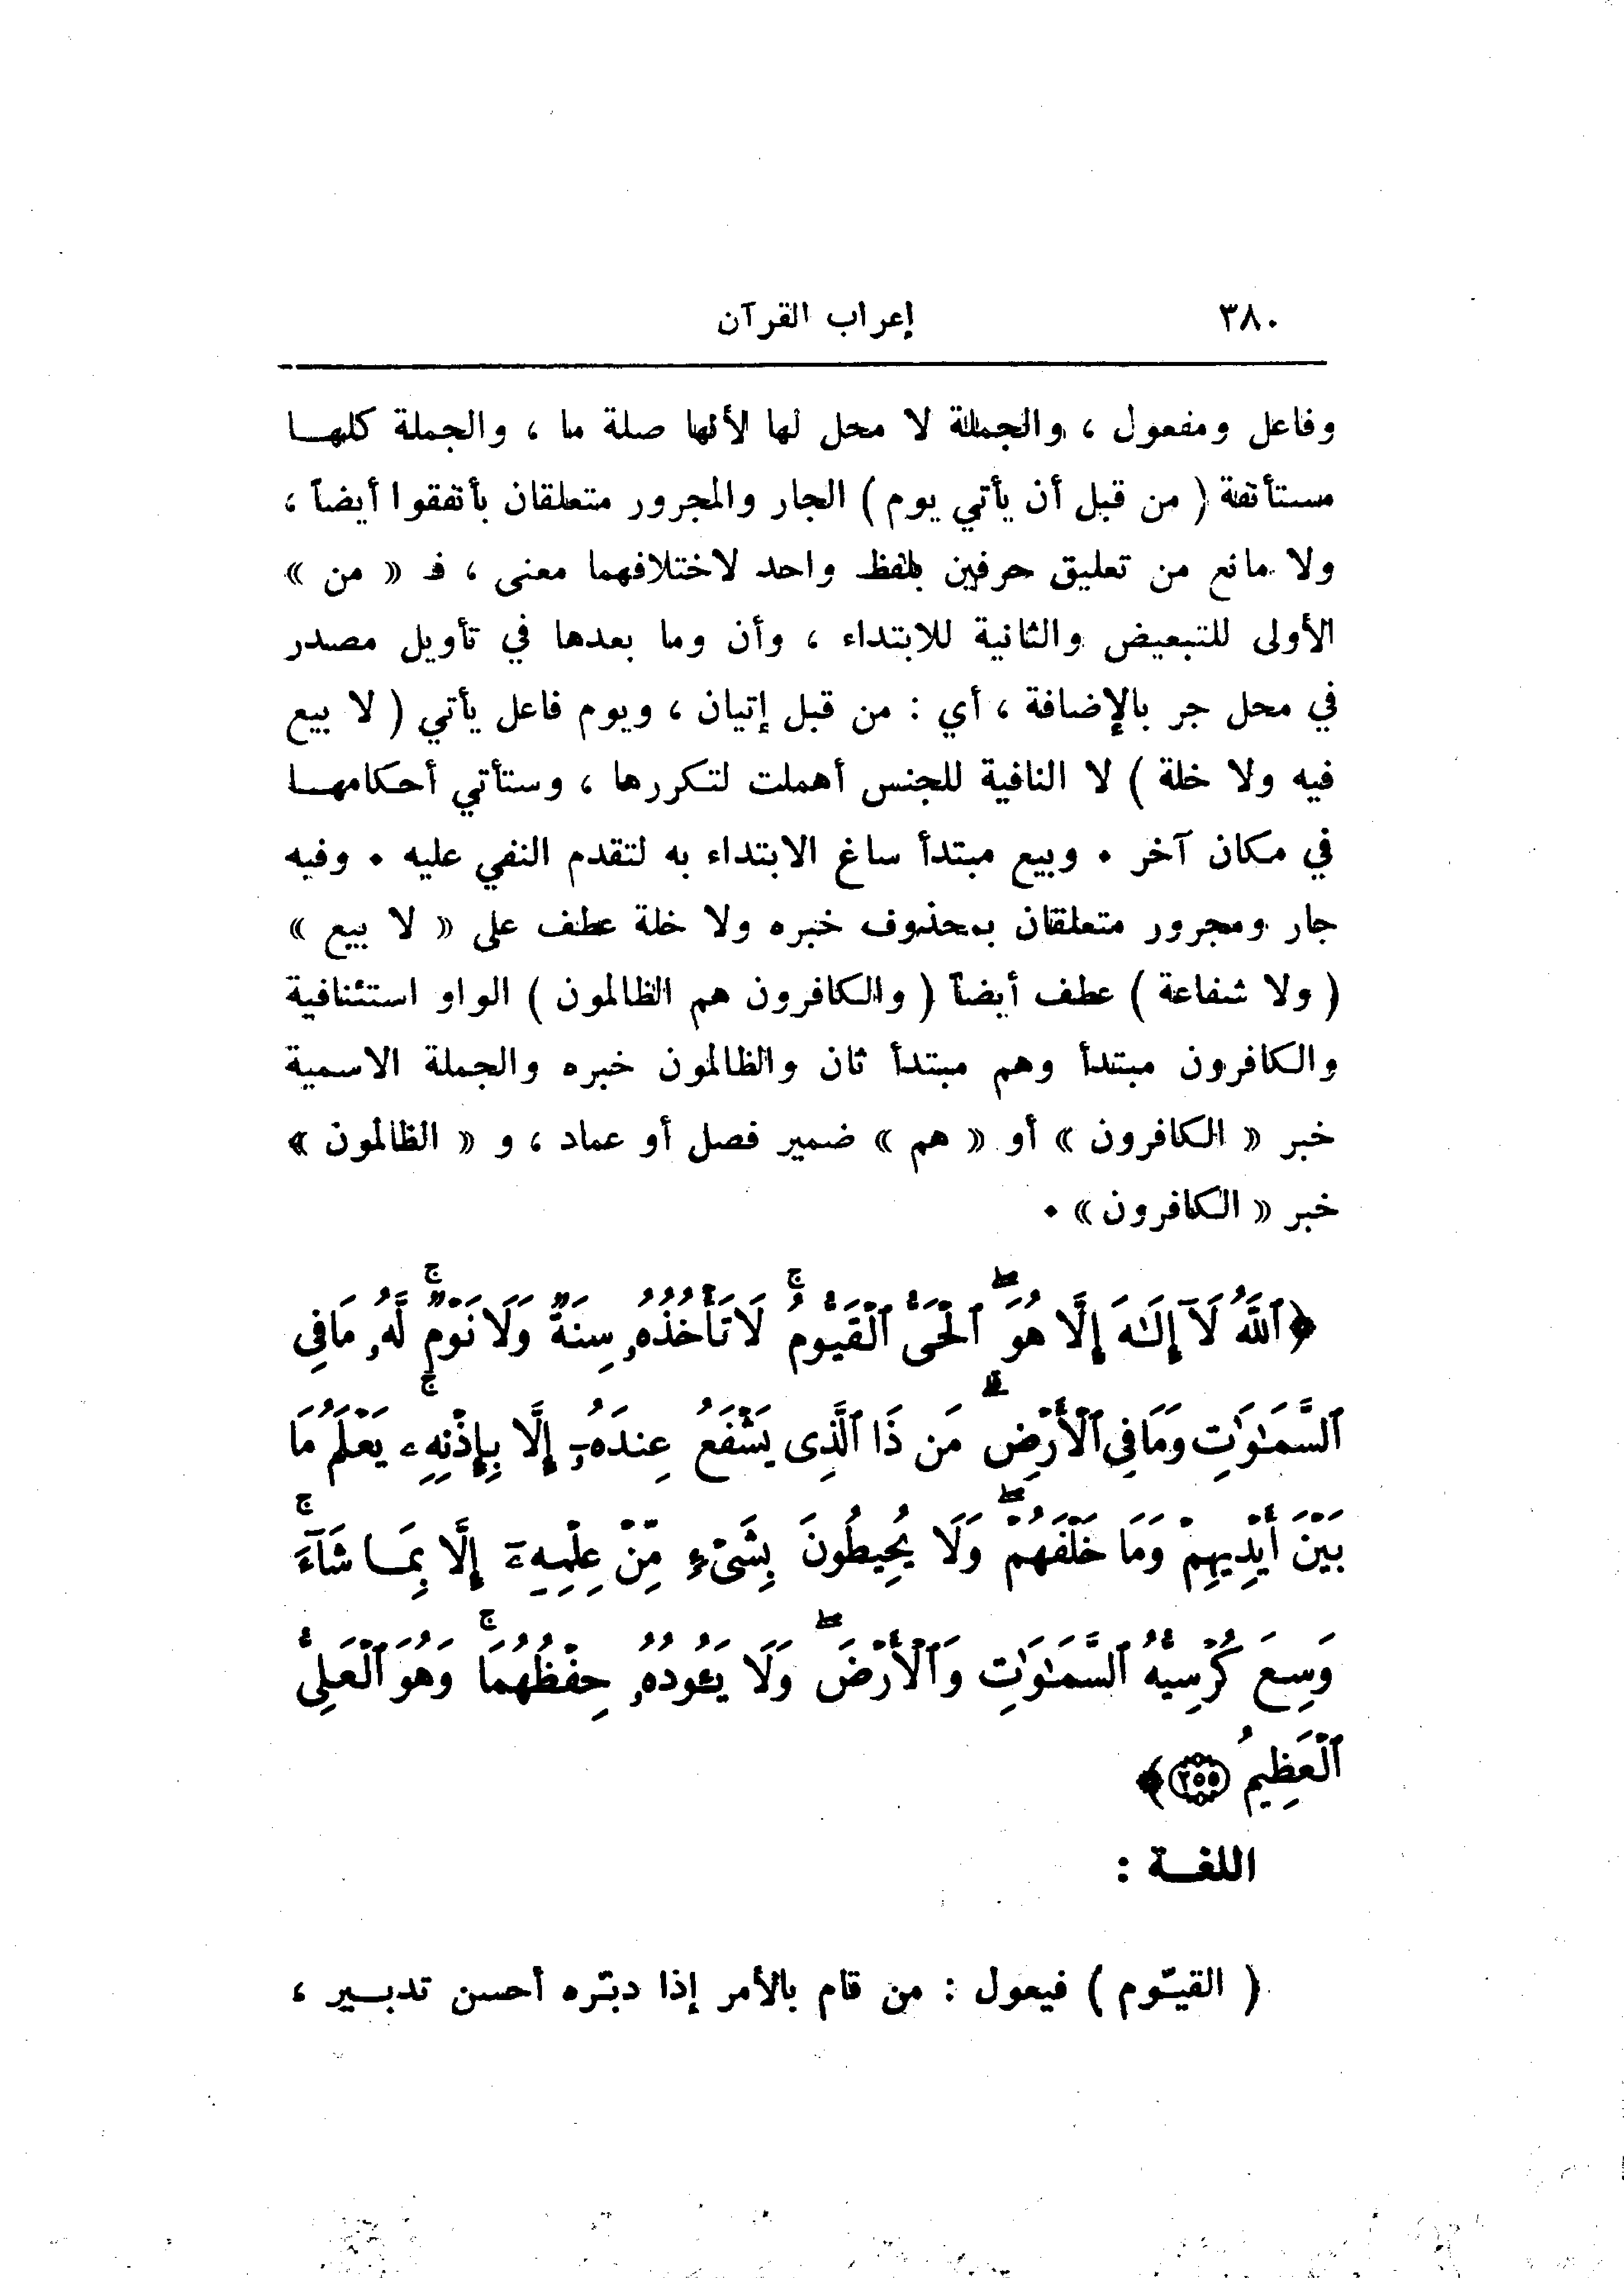 ٣٨٠ إعراب القرآن
وفاعل ومفعول ، والجملة لا محل لها لأنها صلة ما ، والجملة كلهــا
مستأنفة ( من قبل أن يأتي يوم ) الجار والمجرور متعلقان بأنفقوا أيضاً ،
ولا مانع من تعليق حرفين بلفظ واحد لاختلافهما معنى ، فـ « من »
الأولى للتبعيض والثانية للابتداء ، وأن وما بعدها في تأويل مصدر
في محل جر بالإضافة ، أي : من قبل إتيان ، ويوم فاعل يأتي ( لا بيع
فيه ولا خلة ) لا النافية للجنس أهملت لتكررها ، وستأتي أحكامهــا
في مكان آخر . وبيع مبتدأ ساغ الابتداء به لتقدم النفي عليه . وفيه
جار ومجرور متعلقان بمحذوف خبره ولا خلة عطف على « لا بيع »
( ولا شفاعة ) عطف أيضاً ( والكافرون هم الظالمون ) الواو استئنافية
والكافرون مبتدأ وهم مبتدأ ثان والظالمون خبره والجملة الاسمية
خبر « الكافرون » أو « هم » ضمير فصل أو عماد ، و « الظالمون »
خبر « الكافرون » .
﴿ٱللَّهُ لَآ إِلَـٰهَ إِلَّا هُوَۖ ٱلْحَىُّ ٱلْقَيُّومُۚ لَا تَأْخُذُهُۥ سِنَةٌۭ وَلَا نَوْمٌۭۚ لَّهُۥ مَا فِى
ٱلسَّمَـٰوَٰتِ وَمَا فِى ٱلْأَرْضِۗ مَن ذَا ٱلَّذِى يَشْفَعُ عِندَهُۥٓ إِلَّا بِإِذْنِهِۦۚ يَعْلَمُ مَا
بَيْنَ أَيْدِيهِمْ وَمَا خَلْفَهُمْۖ وَلَا يُحِيطُونَ بِشَىْءٍۢ مِّنْ عِلْمِهِۦٓ إِلَّا بِمَا شَآءَۚ
وَسِعَ كُرْسِيُّهُ ٱلسَّمَـٰوَٰتِ وَٱلْأَرْضَۖ وَلَا يَـُٔودُهُۥ حِفْظُهُمَاۚ وَهُوَ ٱلْعَلِىُّ
ٱلْعَظِيمُ ٢٥٥﴾
اللغــة :
( القيّوم ) فيعول : من قام بالأمر إذا دبّره أحسن تدبــير ،